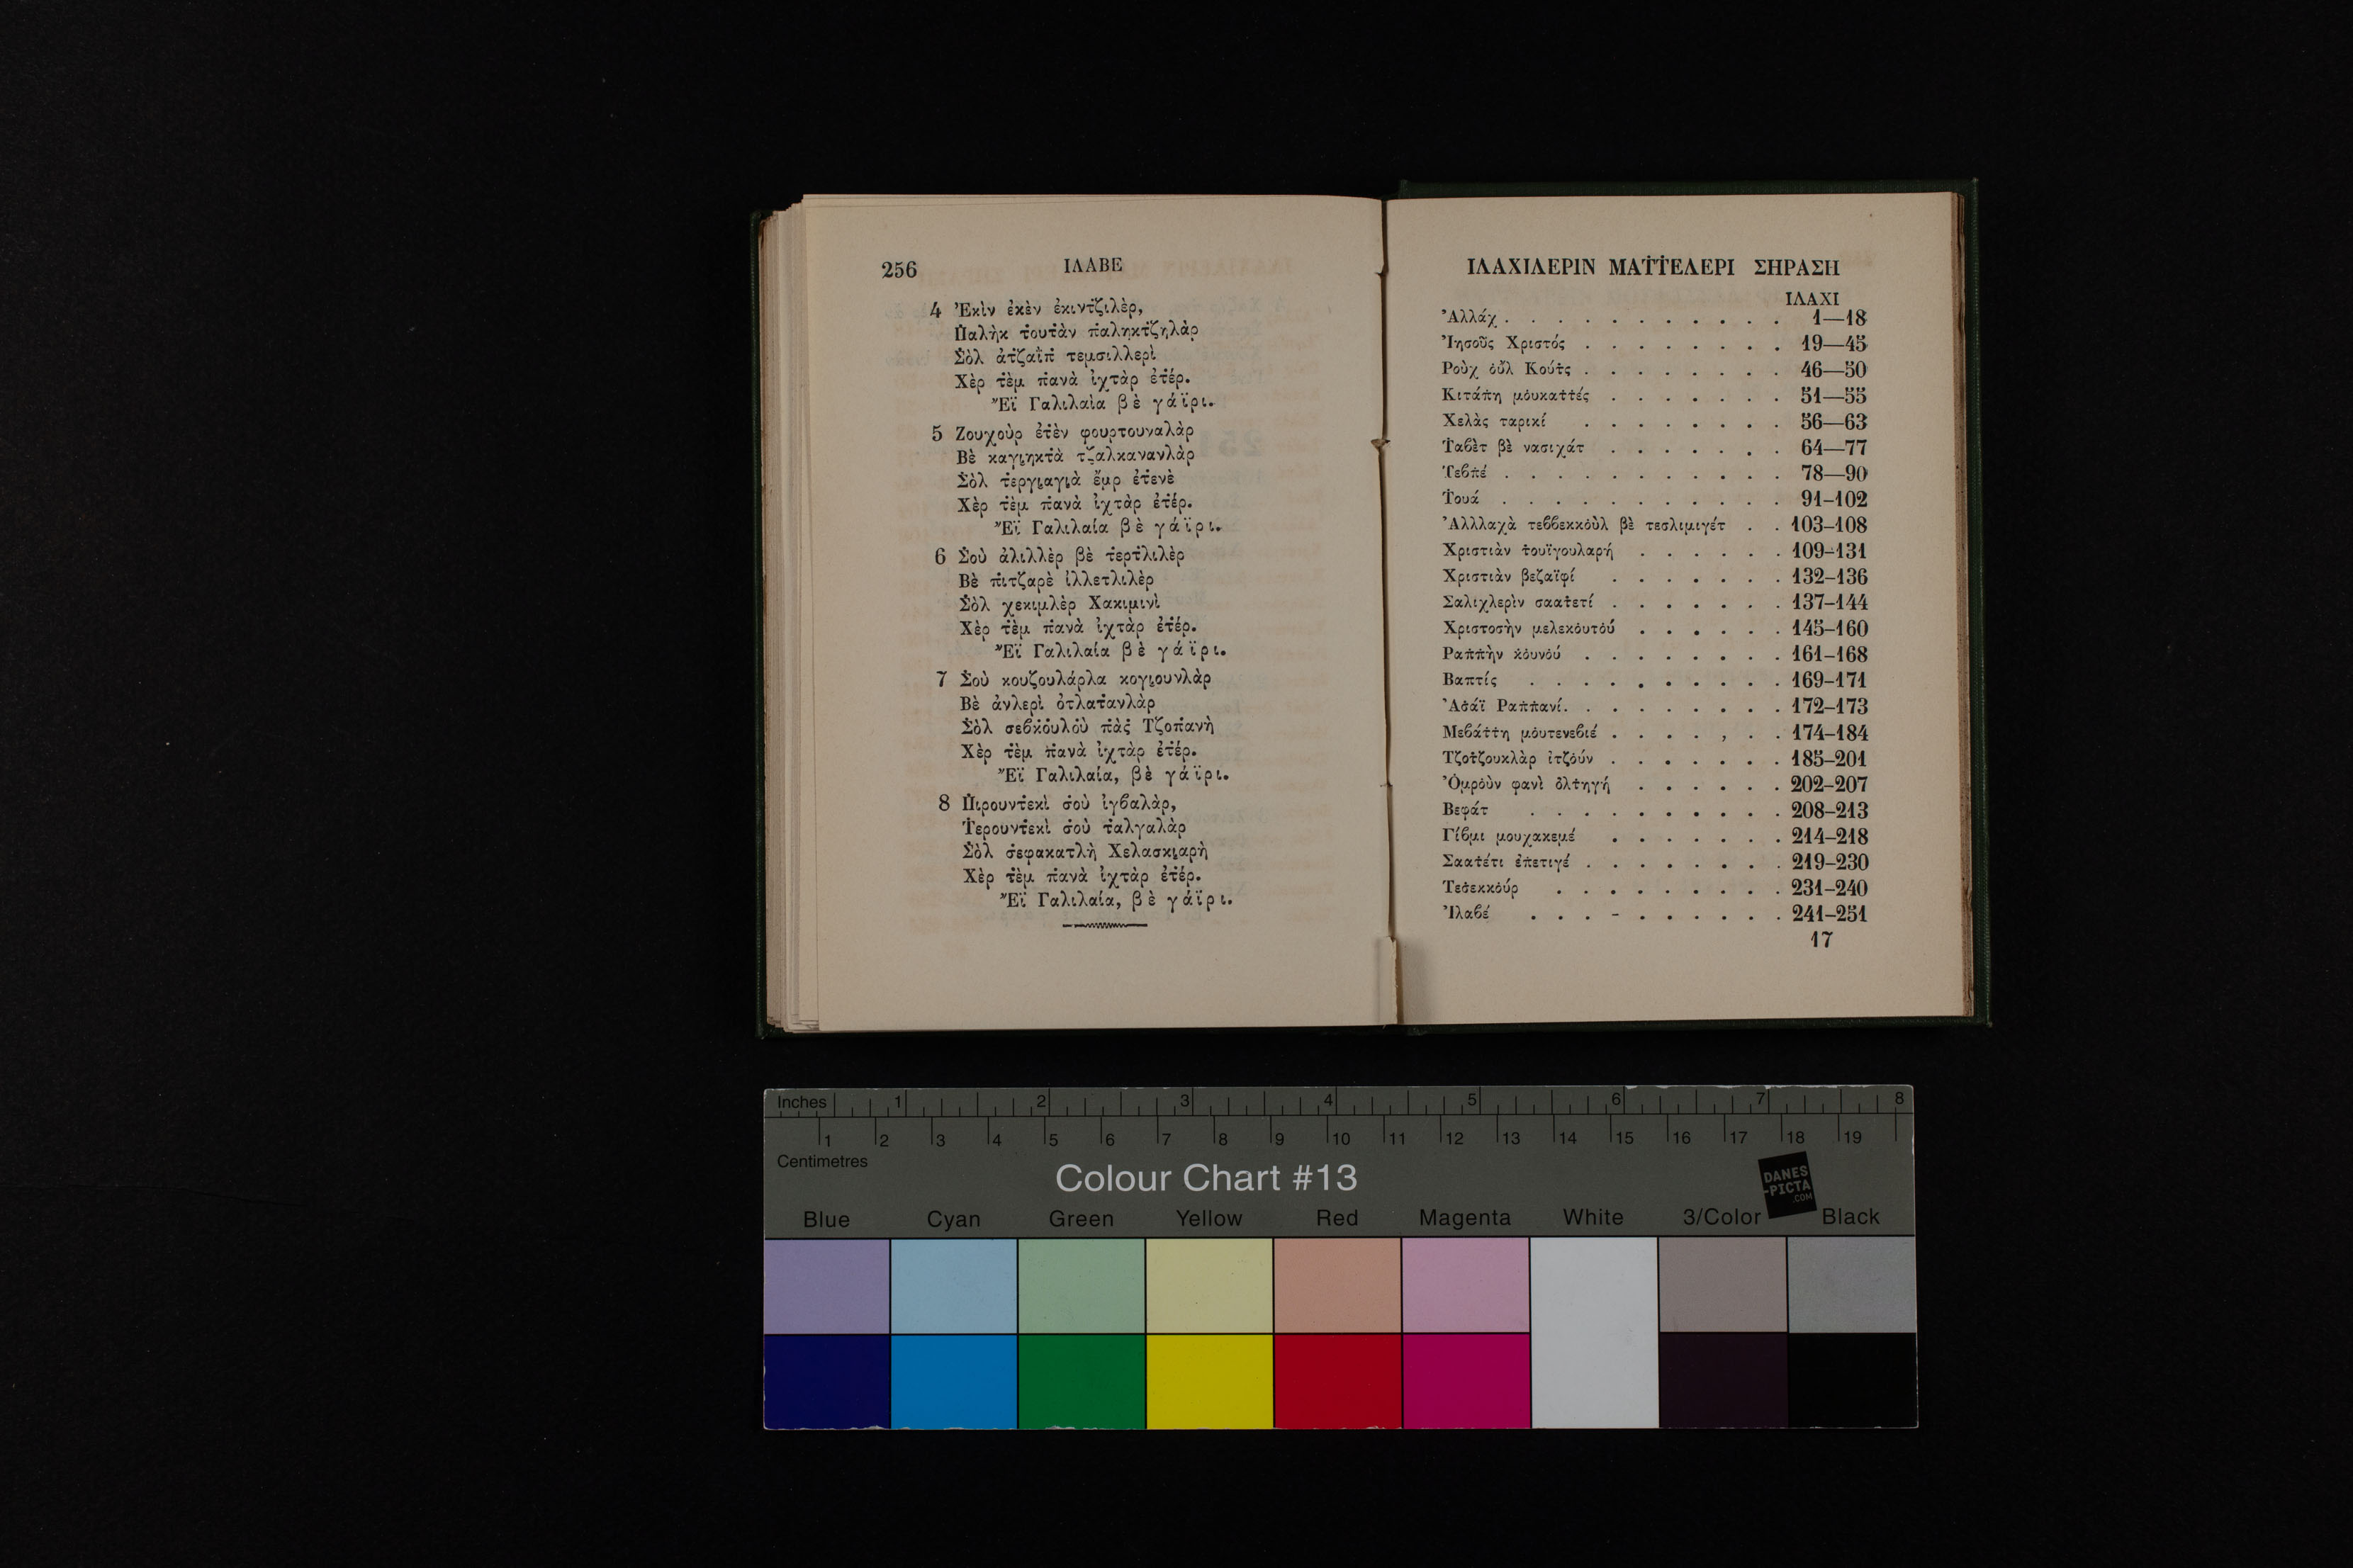 256 ΙΛΑΒΕ
4 Ἐκὶν ἐκὲν ἐκιντζιλὲρ,
Π̇αλὴκ τ̇ουτ̇ὰν π̇αληκτζηλὰρ
Σ̇ὸλ ἀτζαΐπ̇ τεμσιλλερὶ
Χὲρ τ̇ὲμ π̇ανὰ ἰχτὰρ ἐτ̇έρ.
Ἔϊ Γαλιλαία βὲ γάϊρι.
5 Ζουχοὺρ ἐτ̇ὲν φουρτουναλὰρ
Βὲ καγιηκτ̇ὰ τζαλκανανλὰρ
Σ̇ὸλ τ̇εργιαγιὰ ἔμρ ἐτ̇ενὲ
Χὲρ τ̇ὲμ π̇ανὰ ἰχτὰρ ἐτ̇έρ.
Ἔϊ Γαλιλαία βὲ γάϊρι.
6 Σ̇οὺ ἀλιλλὲρ βὲ τ̇ερτ̇λιλὲρ
Βὲ π̇ιτζαρὲ ἰλλετλιλὲρ
Σ̇ὸλ χεκιμλὲρ Χακιμινὶ
Χὲρ τ̇ὲμ π̇ανὰ ἰχτὰρ ἐτ̇έρ.
Ἔϊ Γαλιλαία βὲ γάϊρι.
7 Σ̇οὺ κουζουλάρλα κογιουνλὰρ
Βὲ ἀνλερὶ ὀτλατ̇ανλὰρ
Σ̇ὸλ σεβκιο̇υλο̇ὺ π̇ὰς̇ Τζοπ̇ανὴ
Χὲρ τ̇ὲμ π̇ανὰ ἰχτὰρ ἐτ̇έρ.
Ἔϊ Γαλιλαία, βὲ γάϊρι.
8 Π̇ιρουντ̇εκὶ σ̇οὺ ἰγβαλὰρ,
Τ̇ερουντ̇εκὶ σ̇οὺ τ̇αλγαλὰρ
Σ̇ὸλ σ̇εφακατλὴ Χελασκιαρὴ
Χὲρ τ̇ὲμ π̇ανὰ ἰχτὰρ ἐτ̇έρ.
Ἔϊ Γαλιλαία, βὲ γάϊρι.
ΙΛΑΧΙΛΕΡΙΝ ΜΑΤ̇Τ̇ΕΛΕΡΙ ΣΗΡΑΣΗ
ΙΛΑΧΙ
Ἀλλάχ . . . . . . . . . . . 1—18
Ἰησοῦς Χριστός . . . . . . . . 19—45
Ροὺχ ο̇ὔλ Κούτ̇ς . . . . . . . . 46—50
Κιτάπ̇η μο̇υκατ̇τ̇ές . . . . . . . 51—55
Χελὰς ταρικί . . . . . . . . 56—63
Τ̇αβὲτ βὲ νασιχάτ . . . . . . . 64—77
Τεβπ̇έ . . . . . . . . . . . 78—90
Τ̇ουά . . . . . . . . . . . 91–102
Ἀλλλαχὰ τεββεκκο̇ὺλ βὲ τεσλιμιγέτ . . 103–108
Χριστιὰν τ̇ουϊγουλαρή . . . . . . 109–131
Χριστιὰν βεζαϊφί . . . . . . . 132–136
Σαλιχλερὶν σαατ̇ετί . . . . . . . 137–144
Χριστοσὴν μελεκο̇υτο̇ύ . . . . . . 145–160
Ραπ̇π̇ὴν κιο̇υνο̇ύ . . . . . . . . 161–168
Βαπτίς . . . . . . . . . . 169–171
Ἀσ̇άϊ Ραπ̇π̇ανί. . . . . . . . . 172–173
Μεβάτ̇τ̇η μο̇υτενεβιέ . . . . , . . 174–184
Τζοτζουκλὰρ ἰτζο̇ύν . . . . . . . 185–201
Ὀμρο̇ὺν φανὶ ὀλτ̇ηγή . . . . . . 202–207
Βεφάτ . . . . . . . . . . 208–213
Γίβμι μουχακεμέ . . . . . . . 214–218
Σαατ̇έτι ἐπ̇ετιγέ . . . . . . . . 219–230
Τεσ̇εκκο̇ύρ . . . . . . . . . 231–240
Ἰλαβέ . . . - . . . . . . 241–251
17
Inches 1 2 3 4 5 6 7 8
1 2 3 4 5 6 7 8 9 10 11 12 13 14 15 16 17 18 19
Centimetres
Colour Chart #13
DANES
-PICTA
.COM
Blue Cyan Green Yellow Red Magenta White 3/Color Black